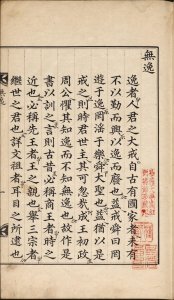 無逸
逸者人君之大戒自古有國家者未有
不以勤而興以逸而廢也益戒舜曰罔
遊于逸罔淫于樂舜大聖也益猶以是
戒之則時君世主其可忽哉成王初政
周公懼其知逸而不知無逸也故作是
書以訓之言則古昔必稱商王者時之
近也必稱先王者王之親也舉三宗者
繼世之君也詳文祖者耳目之所逮也